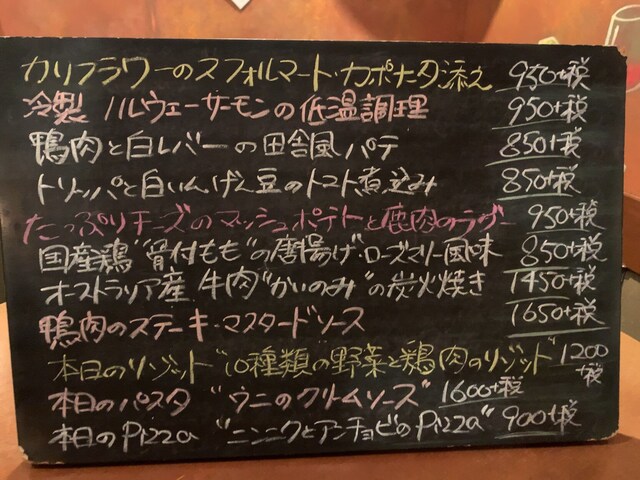 カリフラワーのスフォルマート・カポナータ添え 950+税
冷製 ノルウェーサーモンの低温調理 950+税
鴨肉と白レバーの田舎風パテ 850+税
トリッパと白いんげん豆のトマト煮込み 850+税
たっぷりチーズのマッシュポテトと鹿肉のラグー 950+税
国産鶏"骨付もも"の唐揚げ・ローズマリー風味 850+税
オーストラリア産 牛肉"かいのみ"の炭火焼き 1450+税
鴨肉のステーキ・マスタードソース 1650+税
本日のリゾット"10種類の野菜と鶏肉のリゾット" 1200+税
本日のパスタ "ウニのクリームソース" 1600+税
本日のPizza "ニンニクとアンチョビのPizza" 900+税